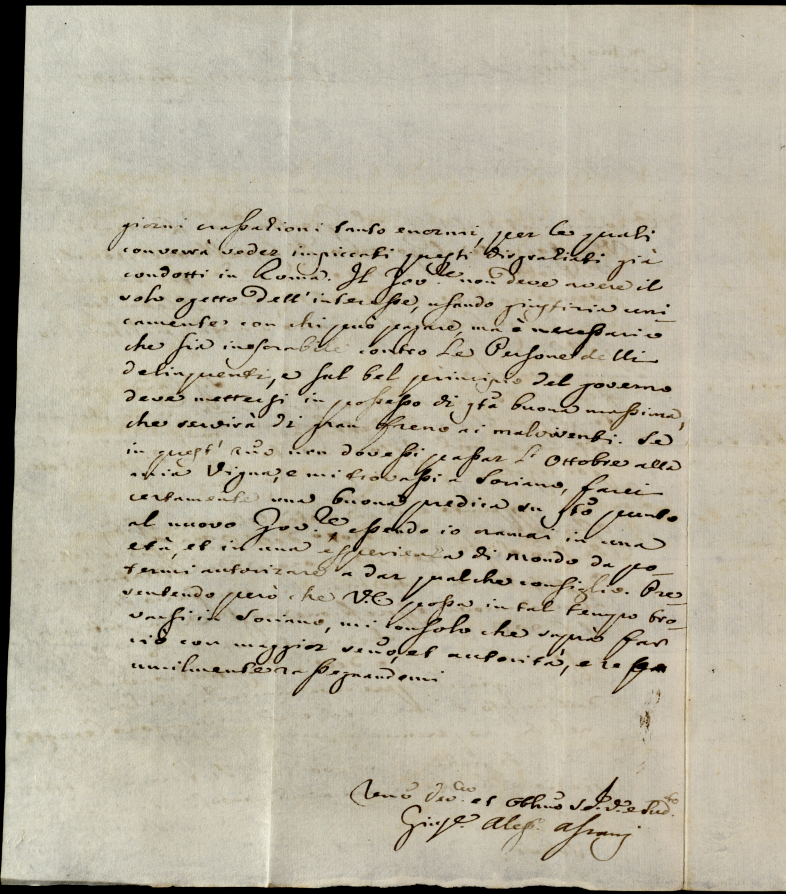 giorni crassazioni tanto enormi, per le quali
converrà veder impiccati questi disgraziati già
condotti in Roma. Il Gov.re non deve avere il
solo ogetto dell'interesse, usando giustizia uni
camente con chi può pagare, ma è necessario
che sia inesorabile contro Le Persone delli
delinquenti, e sul bel principio del governo
deve mettersi in possesso di q.ta buona massima,
che servirà di gran freno ai malviventi. Se
in quest' non dovessi passar L' Ottobre alla
mia Vigna, e mi trovassi a Soriano, farei
certamente una buona predica su q.to punto
al nuovo Gov.re essendo io oramai in una
età, et in una esperienza di Mondo da po-
termi autorizare a dar qualche consiglio. Pre
vedendo però che V.E. possa in tal tempo tro-
varsi in Soriano, mi consolo che saprà far
ciò con maggior senno, et autorità, e resto
umilmente rassegnandomi
et Obblmo
Gius.e Aless.